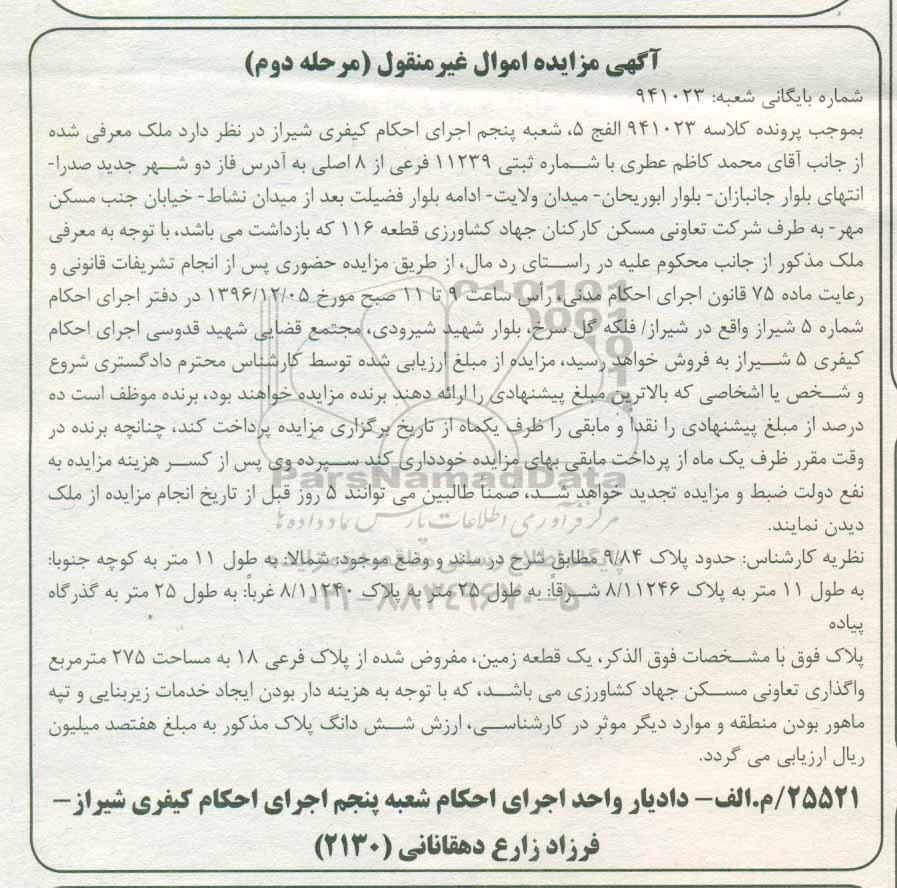 آگهی مزایده اموال غیرمنقول (مرحله دوم)
شماره بایگانی شعبه: ۹۴۱۰۲۳
بموجب پرونده کلاسه ۹۴۱۰۲۳ الفج ۵، شعبه پنجم اجرای احکام کیفری شیراز در نظر دارد ملک معرفی شده
از جانب آقای محمد کاظم عطری با شماره ثبتی ۱۱۲۳۹ فرعی از ۸ اصلی به آدرس فاز دو شهر جدید صدرا-
انتهای بلوار جانبازان- بلوار ابوریحان- میدان ولایت- ادامه بلوار فضیلت بعد از میدان نشاط- خیابان جنب مسکن
مهر- به طرف شرکت تعاونی مسکن کارکنان جهاد کشاورزی قطعه ۱۱۶ که بازداشت می باشد، با توجه به معرفی
ملک مذکور از جانب محکوم علیه در راستای رد مال، از طریق مزایده حضوری پس از انجام تشریفات قانونی و
رعایت ماده ۷۵ قانون اجرای احکام مدنی، رأس ساعت ۹ تا ۱۱ صبح مورخ ۱۳۹۶/۱۲/۰۵ در دفتر اجرای احکام
شماره ۵ شیراز واقع در شیراز/ فلکه گل سرخ، بلوار شهید شیرودی، مجتمع قضایی شهید قدوسی اجرای احکام
کیفری ۵ شیراز به فروش خواهد رسید، مزایده از مبلغ ارزیابی شده توسط کارشناس محترم دادگستری شروع
و شخص یا اشخاصی که بالاترین مبلغ پیشنهادی را ارائه دهند برنده مزایده خواهند بود، برنده موظف است ده
درصد از مبلغ پیشنهادی را نقداً و مابقی را ظرف یکماه از تاریخ برگزاری مزایده پرداخت کند، چنانچه برنده در
وقت مقرر ظرف یک ماه از پرداخت مابقی بهای مزایده خودداری کند سپرده وی پس از کسر هزینه مزایده به
نفع دولت ضبط و مزایده تجدید خواهد شد، ضمناً طالبین می توانند ۵ روز قبل از تاریخ انجام مزایده از ملک
دیدن نمایند.
نظریه کارشناس: حدود پلاک ۹/۸۴ مطابق شرح در سند و وضع موجود: شمالا: به طول ۱۱ متر به کوچه جنوبا:
به طول ۱۱ متر به پلاک ۸/۱۱۲۴۶ شرقاً: به طول ۲۵ متر به پلاک ۸/۱۱۲۴۰ غرباً: به طول ۲۵ متر به گذرگاه
پیاده
پلاک فوق با مشخصات فوق الذکر، یک قطعه زمین، مفروض شده از پلاک فرعی ۱۸ به مساحت ۲۷۵ مترمربع
واگذاری تعاونی مسکن جهاد کشاورزی می باشد، که با توجه به هزینه دار بودن ایجاد خدمات زیربنایی و تپه
ماهور بودن منطقه و موارد دیگر موثر در کارشناسی، ارزش شش دانگ پلاک مذکور به مبلغ هفتصد میلیون
ریال ارزیابی می گردد.
۲۵۵۲۱/م.الف- دادیار واحد اجرای احکام شعبه پنجم اجرای احکام کیفری شیراز-
فرزاد زارع دهقانانی (۲۱۳۰)
ParsNamadData
مرکز فرآوری اطلاعات پارس نماد داده ها
۰۲۱-۸۸۳۴۹۶۷۰-۵